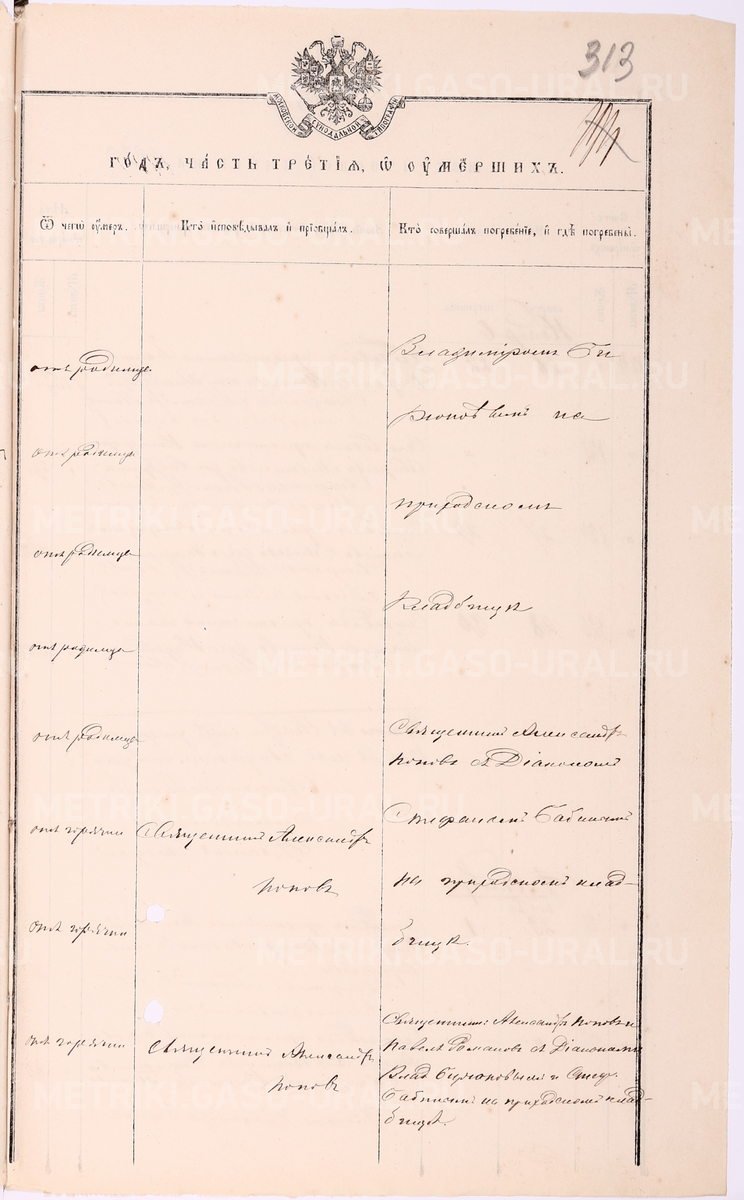 313
МОСКОВСКОЙ СѴНОДАЛЬНОЙ ТИПОГРАФІИ
ГОДЪ, ЧАСТЬ ТРЕТІЯ, Ѿ ОУМЕРШИХЪ.
Ѿ чегѡ оумеръ.
Кто исповѣдывалъ и пріобщалъ.
Кто совершалъ погребеніе, и гдѣ погребены.
отъ родимца
Владиміромъ Би
рюковымъ на
отъ родимца
приходскомъ
отъ родимца
кладбищѣ
отъ родимца
отъ родимца
Священникъ Александръ
Поповъ съ Діакономъ
отъ горячки
Священникъ Александръ
Поповъ
Стефаномъ Бабинымъ
на приходскомъ клад-
отъ горячки
бищѣ.
отъ горячки
Священникъ Александръ
Поповъ
Священники: Александръ Поповъ и
Павелъ Романовъ съ Діаконами
Влад. Бирюковымъ и Стеф.
Бабинымъ на приходскомъ клад-
бищѣ.
METRIKI.GASO-URAL.RU